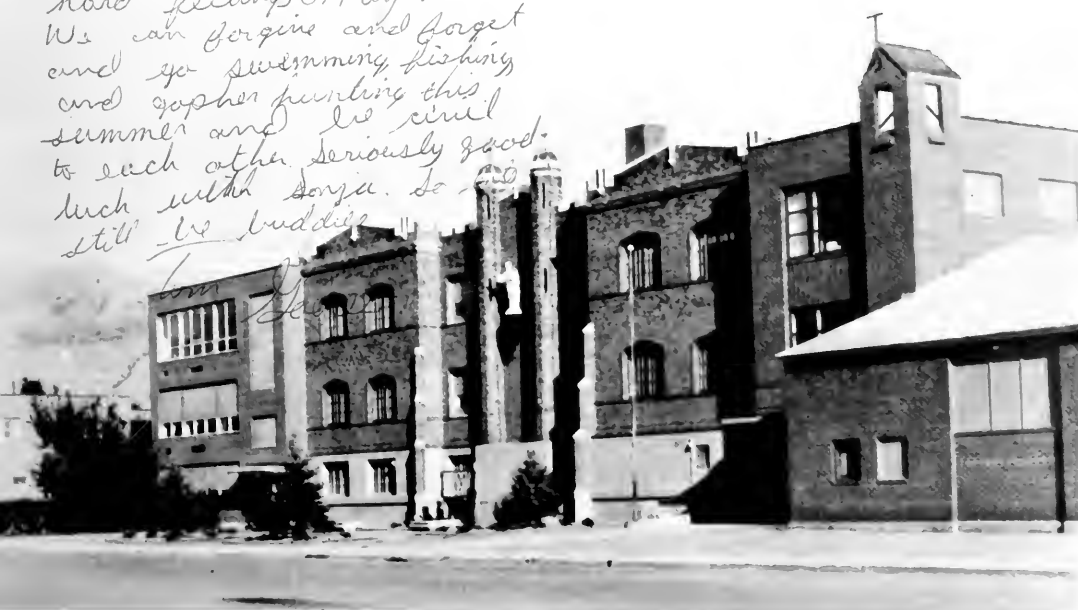 hard feelings
We can forgive and forget
and go swimming, fishing
and gopher hunting this
summer and be civil
to each other. Seriously good
luck with Sonja. So
still be buddies
Tom